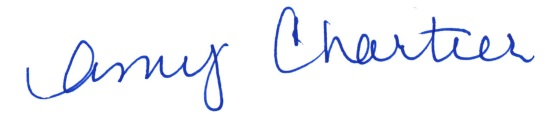 Amy Chartier